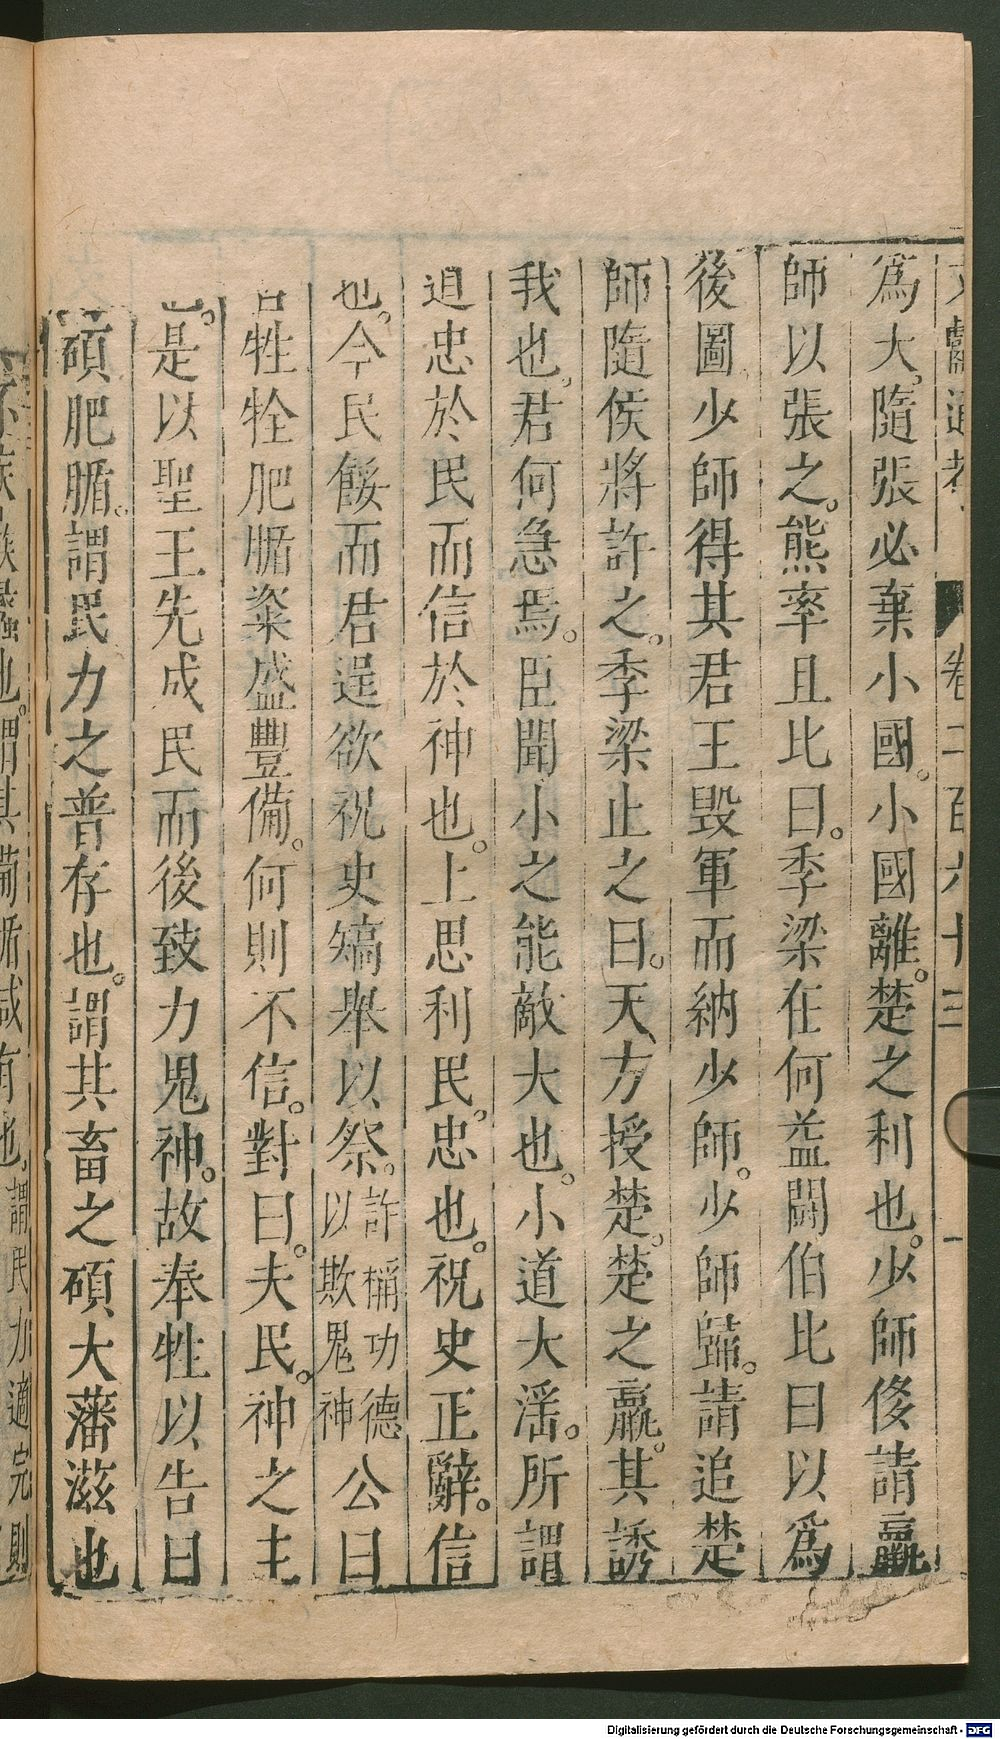 文獻通考 卷二百六十三 一
爲大隨張必棄小國。小國離。楚之利也。少師侈請羸
師以張之。熊率且比曰。季梁在何益鬪伯比曰以爲
後圖少師得其君王毀軍而納少師。少師歸。請追楚
師隨侯將許之。季梁止之曰。天方授楚。楚之羸。其誘
我也。君何急焉。臣聞小之能敵大也。小道大淫。所謂
道忠於民而信於神也。上思利民。忠也。祝史正辭。信
也。今民餒而君逞欲祝史矯舉以祭。詐稱功德以欺鬼神公曰
吾牲牷肥腯粢盛豐備。何則不信。對曰。夫民。神之主
也。是以聖王先成民而後致力鬼神。故奉牲以告曰
碩肥腯。謂民力之普存也。謂其畜之碩大蕃滋也
不疾瘯蠡也。謂其備腯咸有也。謂民力適完則
Digitalisierung gefördert durch die Deutsche Forschungsgemeinschaft - DFG